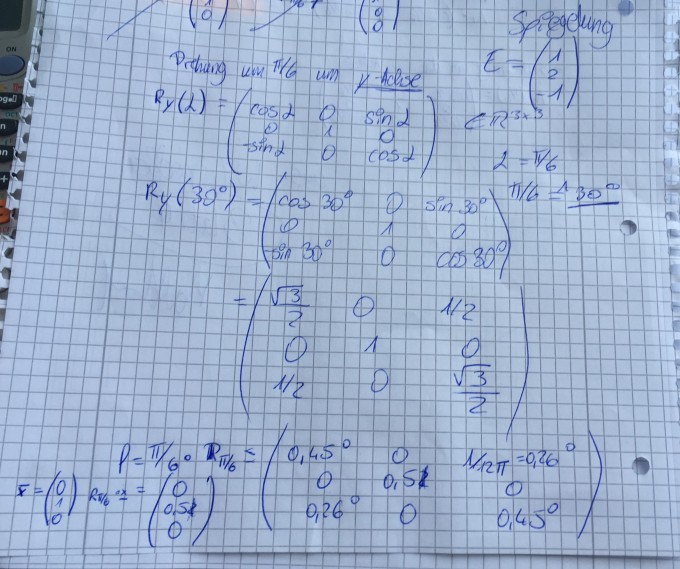 Spiegelung
Drehung um π/6 um y-Achse
E = (1 2 -1)
Ry(α) = (cos α 0 sin α
0 1 0
-sin α 0 cos α)
∈ R^3×3
α = π/6
π/6 ≙ 30°
Ry(30°) = (cos 30° 0 sin 30°
0 1 0
-sin 30° 0 cos 30°)
= (√3/2 0 1/2
0 1 0
1/2 0 √3/2)
P = π/6 ° Rπ/6 = (0,45° 0 1/12π = 0,26°
0 0,51 0
0,26° 0 0,45°)
x = (0 1 0) Rπ/6 · x = (0 0,51 0)
ON